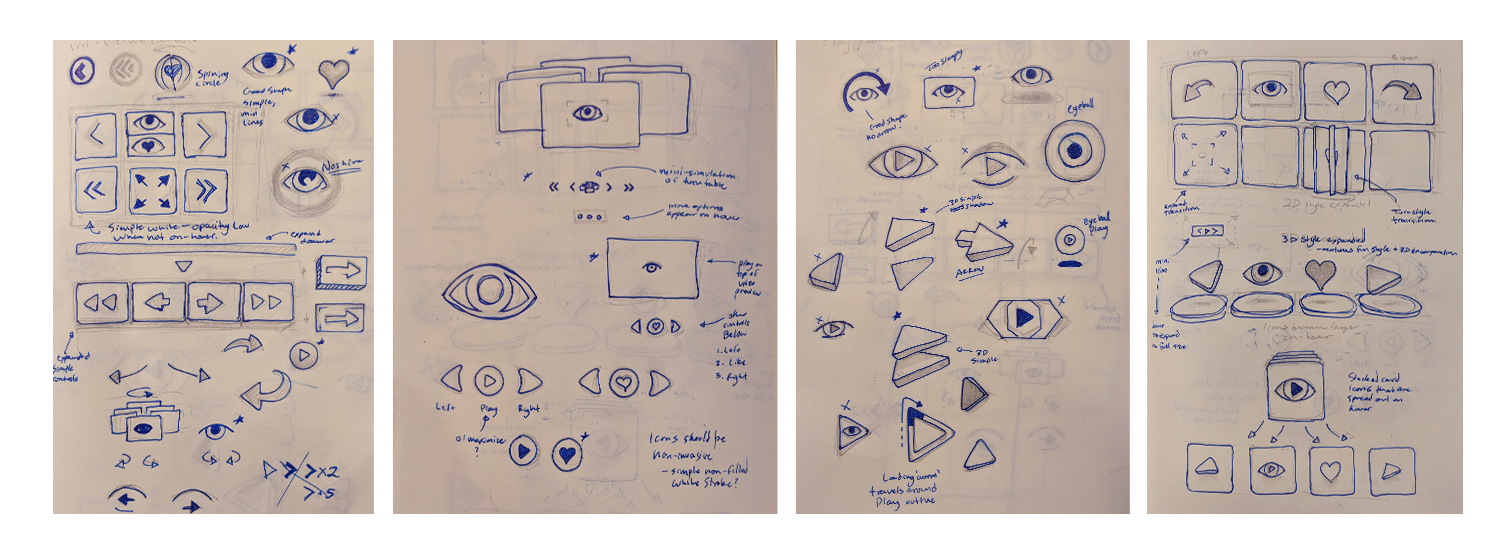 Spining
circle
Good shape
simple,
min
lines
No shine
Simple white - opacity low
when not on-hover.
expand
drawer
expanded
simple
controls
x2
mini-simulation
of turntable
more options
appear on hover
play on
top of
video
preview
other
controls
Below
1. Left
2. Like
3. Right
Left Play Right
or maximize
?
Icons should be
non-invasive
- simple non-filled
white stroke?
Too sleepy
Good shape
no arrow.
eyeball
3D simple
shadow
Arrow
eyeball
play
3D
simple
Loading 'worm'
travels around
Play outline
2D style expanded
expand
transition
Turnstyle
transition
mini
icon
3D style expanded
Icons become larger
on-hover
to full size
Stacked card
icons that are
spread out on
hover